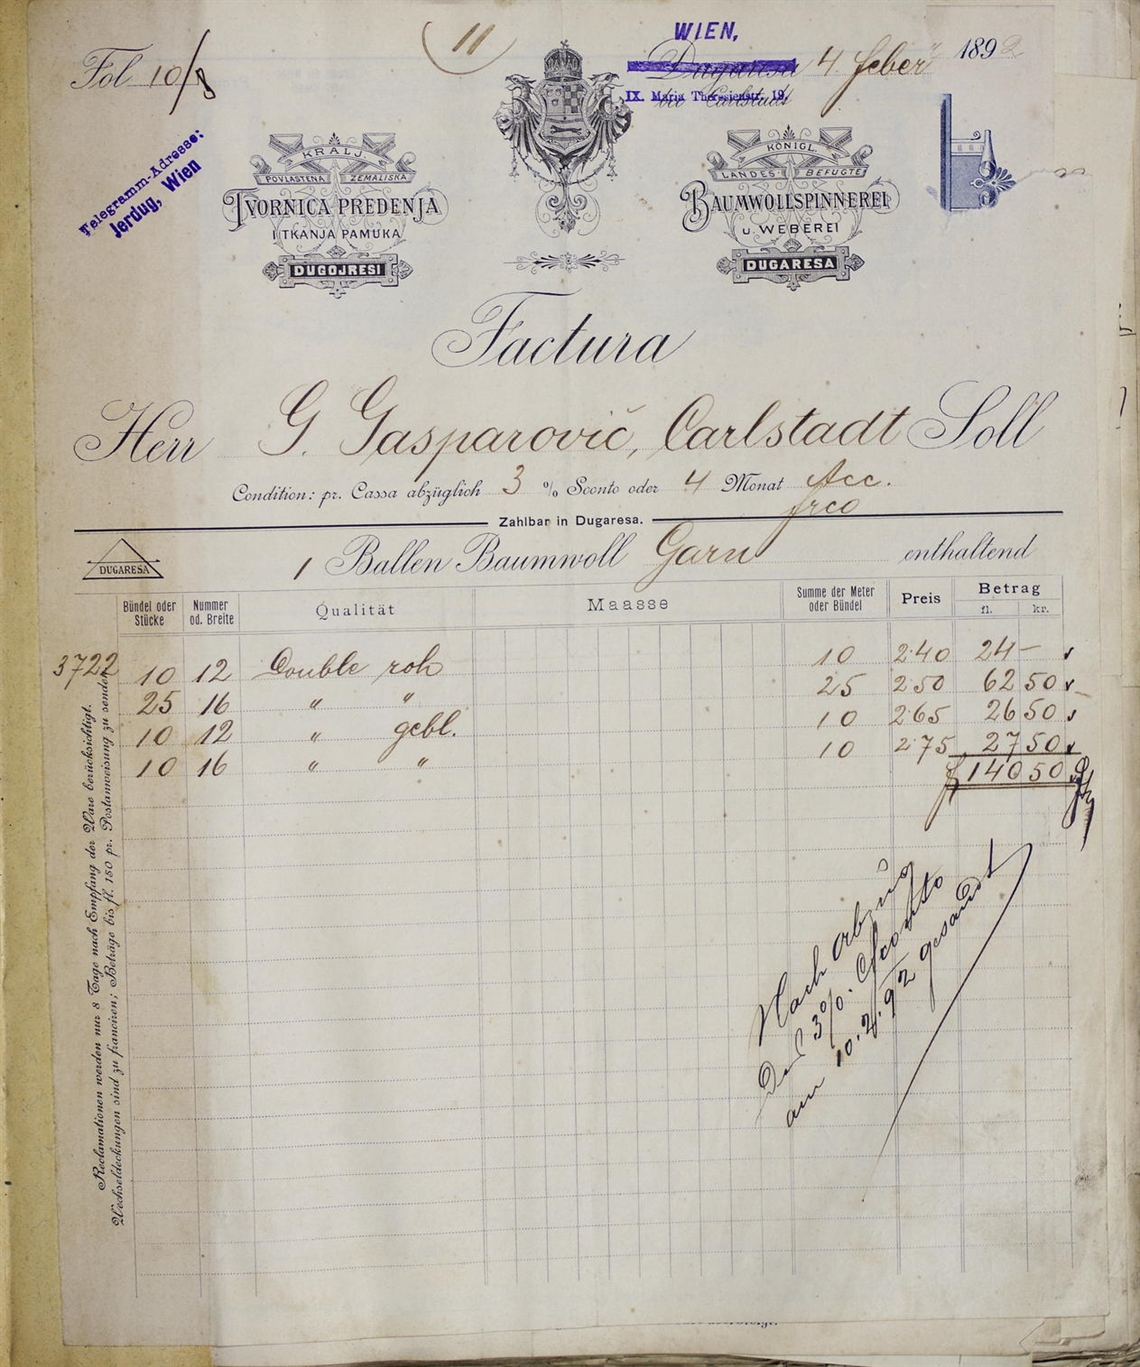 Fol 10/8
11
WIEN,
Dugaresa 4 Feber 1892
IX. Maria Theresienstr. 19.
bei Carlstadt
Telegramm-Adresse:
Jerdug, Wien
KRALJ.
POVLASTENA ZEMALJSKA
TVORNICA PREDENJA
I TKANJA PAMUKA
DUGOJRESI
KÖNIGL.
LANDES-BEFUGTE
BAUMWOLLSPINNEREI
U. WEBEREI
DUGARESA
Factura
Herr G. Gasparović, Carlstadt Soll
Condition: pr. Cassa abzüglich 3 % Sconto oder 4 Monat Acc.
frco
Zahlbar in Dugaresa.
DUGARESA
1 Ballen Baumwoll Garn enthaltend
Bündel oder Stücke Nummer od. Breite Qualität Maasse Summe der Meter oder Bündel Preis Betrag fl. kr.
3722 10 12 Double roh 10 2·40 24 –
25 16 " " 25 2·50 62 50
10 12 " gebl. 10 2·65 26 50
10 16 " " 10 2·75 27 50
f 140 50
Nach Abzug
3% Sconto
am 10.2.92 gesandt
Reclamationen werden nur 8 Tage nach Empfang der Ware berücksichtigt.
Wechseldeckungen sind zu franciren; Beträge bis fl. 150 pr. Postanweisung zu senden